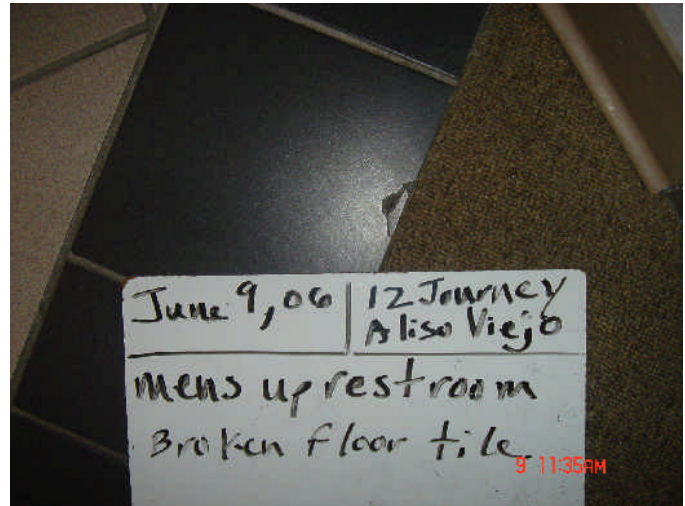 June 9, 06
12 Journey
Aliso Viejo
mens up restroom
Broken floor tile.
9 11:35AM